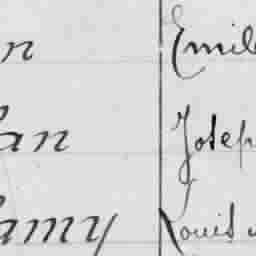 n Emil
an Josep
amy Louis